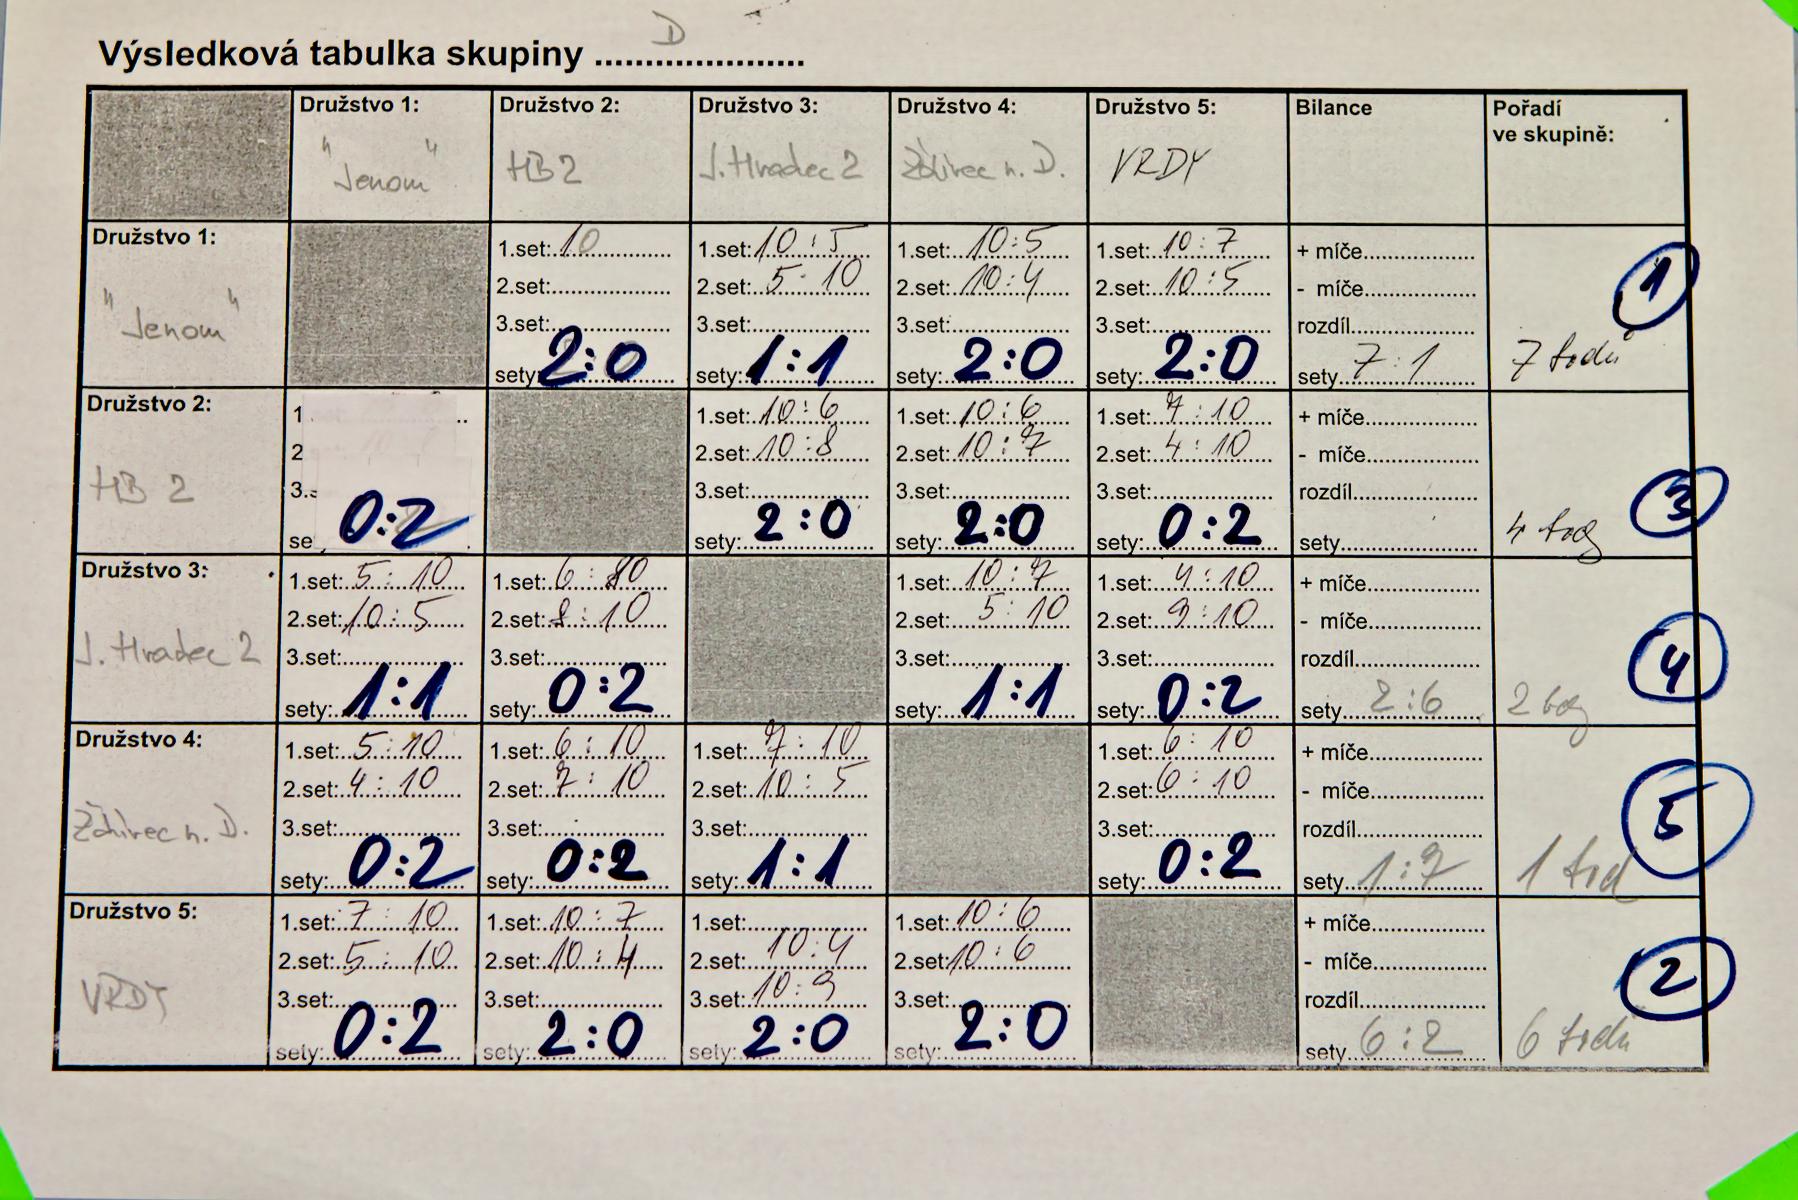 Výsledková tabulka skupiny ..................... D
Družstvo 1: "Jenom"
Družstvo 2: HB 2
Družstvo 3: J. Hradec 2
Družstvo 4: Ždírec n. D.
Družstvo 5: VRDY
Bilance
Pořadí
ve skupině:
Družstvo 1:
"Jenom"
1.set: 10
2.set:
3.set:
sety: 2:0
1.set: 10:5
2.set: 5:10
3.set:
sety: 1:1
1.set: 10:5
2.set: 10:4
3.set:
sety: 2:0
1.set: 10:7
2.set: 10:5
3.set:
sety: 2:0
+ míče
- míče
rozdíl
sety 7:1
1
7 bodů
Družstvo 2:
HB 2
1.
2
3.
se 0:2
1.set: 10:6
2.set: 10:8
3.set:
sety: 2:0
1.set: 10:6
2.set: 10:7
3.set:
sety: 2:0
1.set: 7:10
2.set: 4:10
3.set:
sety: 0:2
+ míče
- míče
rozdíl
sety
3
4 body
Družstvo 3:
J. Hradec 2
1.set: 5:10
2.set: 10:5
3.set:
sety: 1:1
1.set: 6:10
2.set: 8:10
3.set:
sety: 0:2
1.set: 10:7
2.set: 5:10
3.set:
sety: 1:1
1.set: 4:10
2.set: 9:10
3.set:
sety: 0:2
+ míče
- míče
rozdíl
sety 2:6
4
2 body
Družstvo 4:
Ždírec n. D.
1.set: 5:10
2.set: 4:10
3.set:
sety: 0:2
1.set: 6:10
2.set: 7:10
3.set:
sety: 0:2
1.set: 7:10
2.set: 10:5
3.set:
sety: 1:1
1.set: 6:10
2.set: 6:10
3.set:
sety: 0:2
+ míče
- míče
rozdíl
sety 1:7
5
1 bod
Družstvo 5:
VRDY
1.set: 7:10
2.set: 5:10
3.set:
sety: 0:2
1.set: 10:7
2.set: 10:4
3.set:
sety: 2:0
1.set:
2.set: 10:4
3.set: 10:9
sety: 2:0
1.set: 10:6
2.set: 10:6
3.set:
sety: 2:0
+ míče
- míče
rozdíl
sety 6:2
2
6 bodů